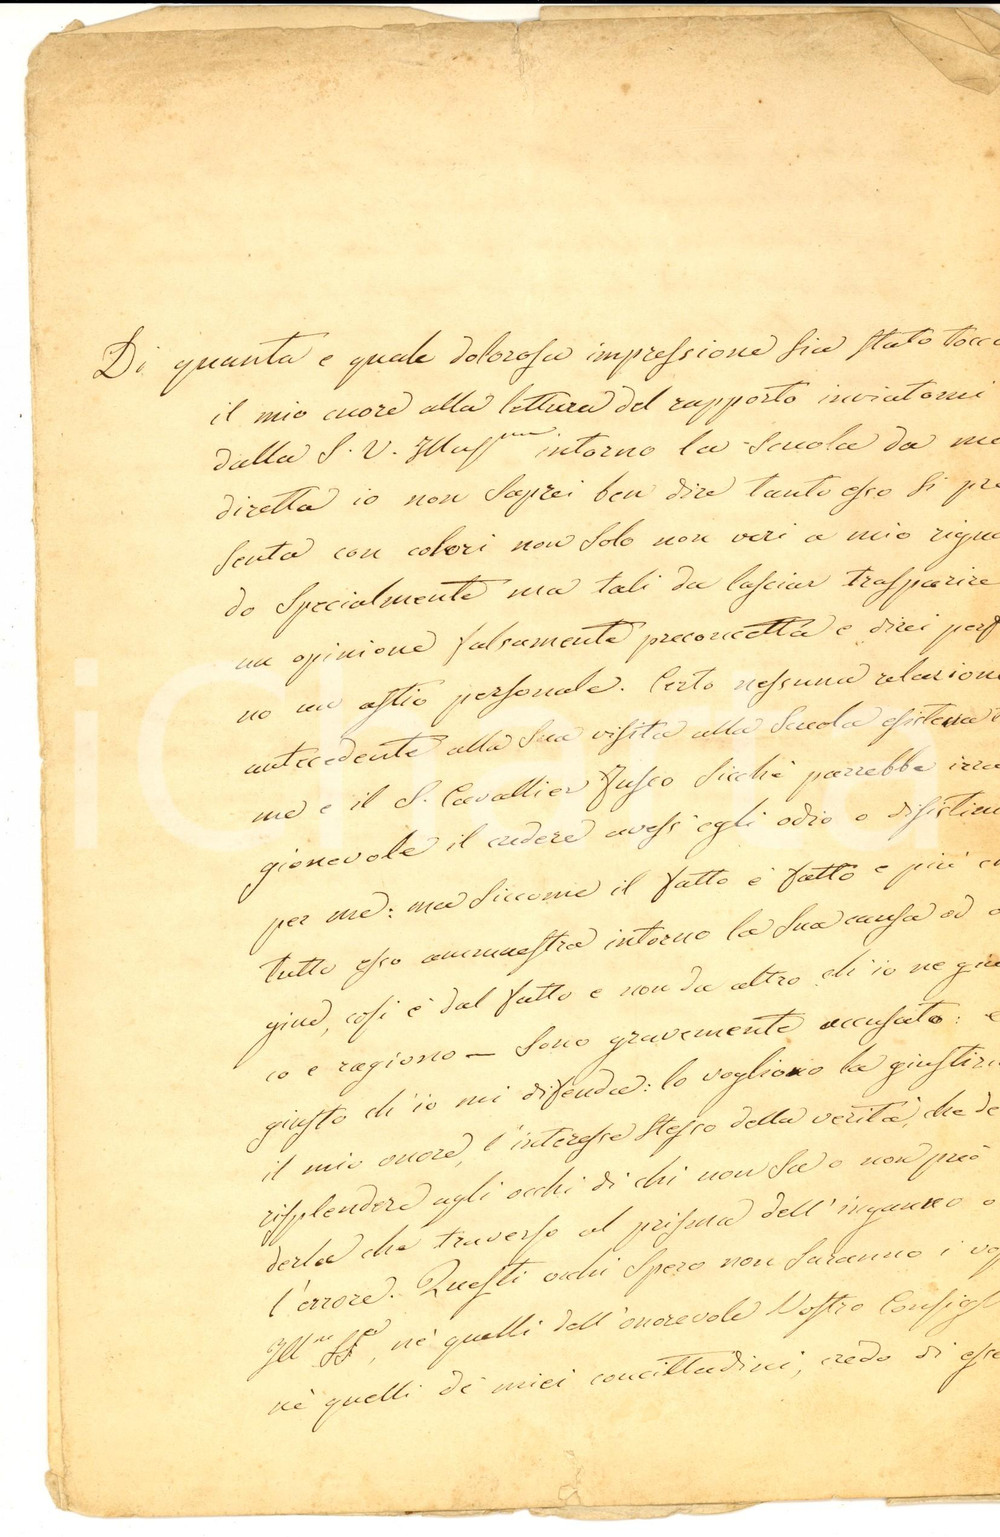 Di quanta e quale dolorosa impressione sia stato tocca
il mio cuore alla lettura del rapporto inviatomi
dalla S. V. Illus^ma intorno la Scuola da me
diretta io non saprei ben dire tanto esso si pre
senta con colori non solo non veri a mio rigua
do specialmente ma tali da lasciar trasparire
un opinione falsamente preconcetta e direi perf
no un astio personale. Certo nessuna relazione
antecedente alla sua visita alla Scuola esisteva t
me e il S. Cavallier Fusco sicchè parrebbe irra
gionevole il credere avess' egli odio o disistim
per me: ma siccome il fatto è fatto e più c
tutto esso ammaestra intorno la sua causa od o
gine, così è dal fatto e non da altro ch' io ne giu
co e ragiono — Sono gravemente accusato: e
giusto ch' io mi difenda: lo vogliono la giustizi
il mio onore, l' interesse stesso della verità, che de
risplendere agli occhi di chi non sa o non può
derla che traverso al prisma dell' inganno o
l' errore. Questi occhi spero non saranno i vos
Ill^mi SS^ri, nè quelli dell' onorevole Vostro Consigl
nè quelli de' miei concittadini, credo di esse
iCharta